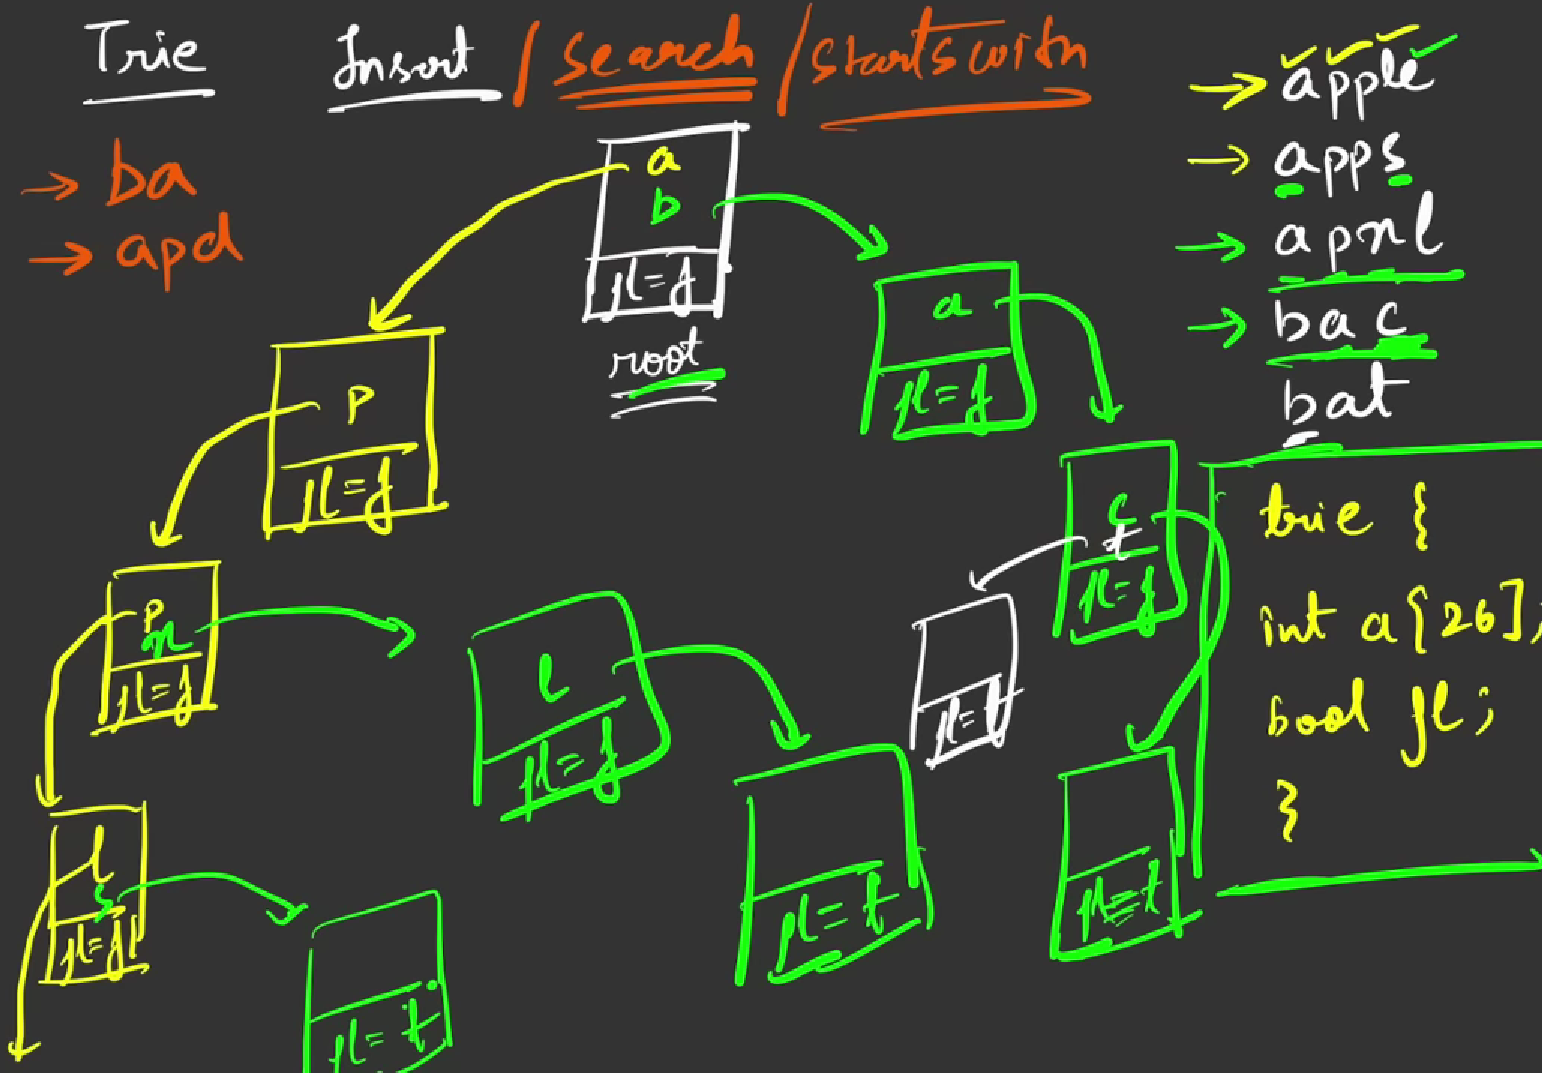 Trie Insert / Search / Startswith
→ ba
→ apd
→ apple
→ apps
→ apxl
→ bac
bat
a
b
fl=f
root
a
fl=f
p
fl=f
c
t
fl=f
p
x
fl=f
l
fl=f
fl=t
l
s
fl=f
fl=t
fl=t
fl=t
trie {
int a[26];
bool fl;
}